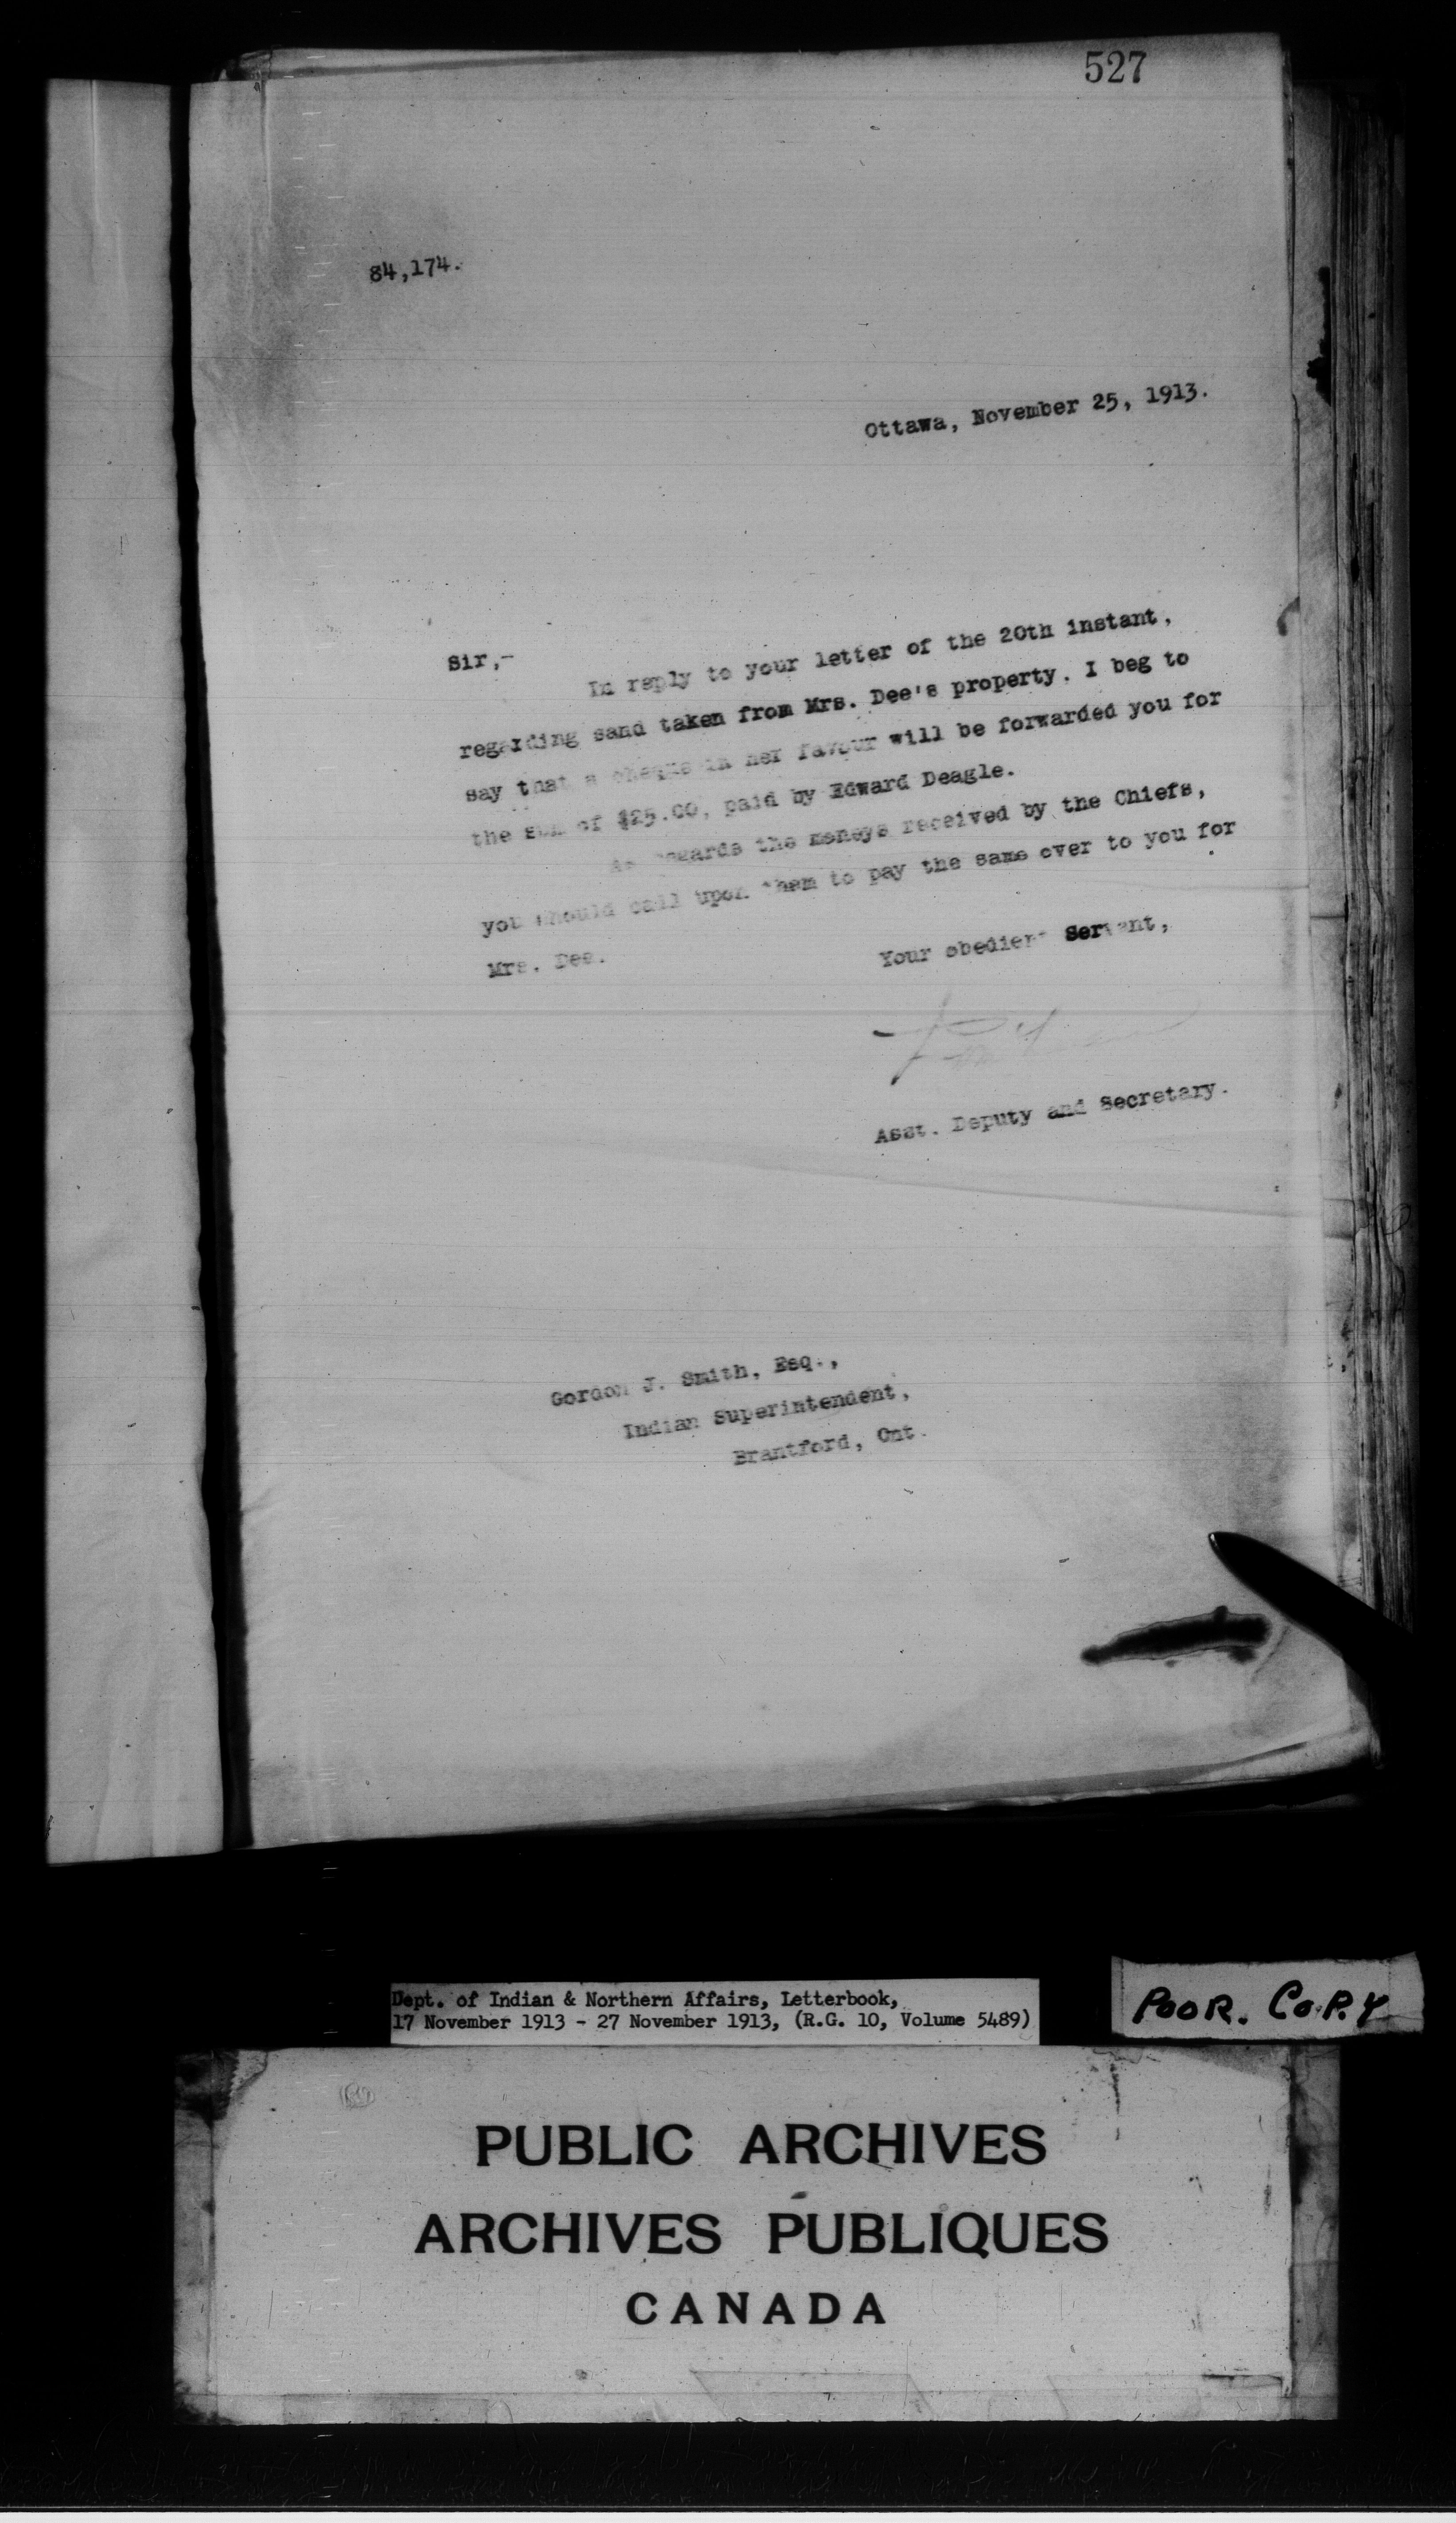 527
84,174.
Ottawa, November 25, 1913.
Sir,-
In reply to your letter of the 20th instant,
regarding sand taken from Mrs. Dee's property, I beg to
say that a cheque in her favour will be forwarded you for
the sum of $25.00, paid by Edward Deagle.
As regards the moneys received by the Chiefs,
you should call upon them to pay the same over to you for
Mrs. Dee.
Your obedient Servant,
Asst. Deputy and Secretary.
Gordon J. Smith, Esq.,
Indian Superintendent,
Brantford, Ont.
Dept. of Indian & Northern Affairs, Letterbook,
17 November 1913 - 27 November 1913, (R.G. 10, Volume 5489)
POOR. COPY
PUBLIC ARCHIVES
ARCHIVES PUBLIQUES
CANADA